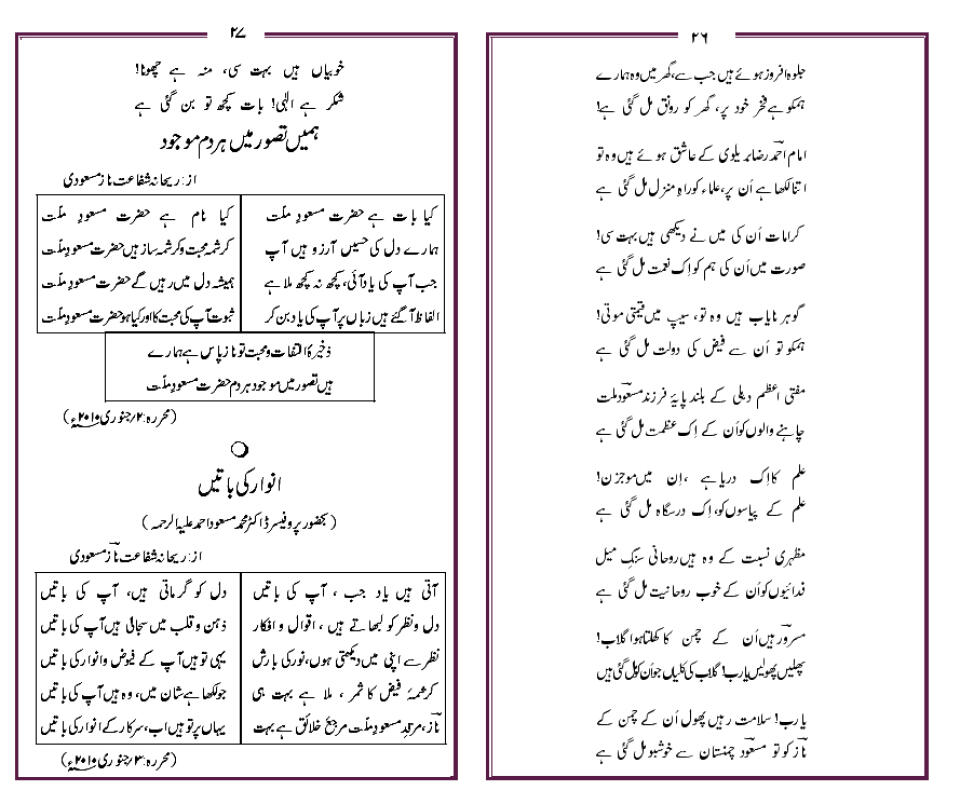 ۲۶
جلوہ افروز ہوئے ہیں جب سے، گھر میں وہ ہمارے
ہمکو ہے فخر خود پر، گھر کو رونق مل گئی ہے!
امام احمد رضا بریلوی کے عاشق ہوئے ہیں وہ تو
اتنا لکھا ہے اُن پر، علماء کو راہِ منزل مل گئی ہے
کرامات اُن کی میں نے دیکھی ہیں بہت سی!
صورت میں اُن کی ہم کو اِک نعمت مل گئی ہے
گوہرِ نایاب ہیں وہ تو، سیپ میں قیمتی موتی!
ہمکو تو اُن سے فیض کی دولت مل گئی ہے
مفتی اعظم دہلی کے بلند پایۂ فرزند مسعودِ ملت
چاہنے والوں کو اُن کے اِک عظمت مل گئی ہے
علم کا اِک دریا ہے ،اِن میں موجزن!
علم کے پیاسوں کو، اِک درسگاہ مل گئی ہے
مظہری نسبت کے وہ ہیں روحانی سنگِ میل
فدائیوں کو اُن کے خوب روحانیت مل گئی ہے
مسرور ہیں اُن کے چمن کا کھلتا ہوا گلاب!
پھلیں پھولیں یا رب! گلاب کی کلیاں جو اُن کو مل گئی ہیں
یا رب! سلامت رہیں پھول اُن کے چمن کے
ناز کو تو مسعود چمنستان سے خوشبو مل گئی ہے
۲۷
خوبیاں ہیں بہت سی، منہ ہے چھوٹا!
شکر ہے الٰہی! بات کچھ تو بن گئی ہے
ہمیں تصور میں ہر دم موجود
از: ریحانہ شفاعت ناز مسعودی
کیا بات ہے حضرت مسعودِ ملّت کیا نام ہے حضرت مسعودِ ملّت
ہمارے دل کی حسیں آرزو ہیں آپ کرشمہ محبت و کرشمہ ساز ہیں حضرت مسعودِ ملّت
جب آپ کی یاد آئی، کچھ نہ کچھ ملا ہے ہمیشہ دل میں رہیں گے حضرت مسعودِ ملّت
الفاظ آ گئے ہیں زباں پر آپ کی یاد بن کر ثبوت آپ کی محبت کا اور کیا ہو حضرت مسعودِ ملّت
ذخیرۂ التفات و محبت تو ناز پاس ہے ہمارے
ہیں تصور میں موجود ہر دم حضرت مسعودِ ملّت
(محررہ: ۲؍جنوری ۲۰۱۰ء)
انوار کی باتیں
(بحضور پروفیسر ڈاکٹر محمد مسعود احمد علیہ الرحمہ)
از: ریحانہ شفاعت ناز مسعودی
آتی ہیں یاد جب ، آپ کی باتیں دل کو گرماتی ہیں، آپ کی باتیں
دل و نظر کو لبھاتے ہیں ، اقوال و افکار ذہن و قلب میں سجالی ہیں آپ کی باتیں
نظر سے اپنی میں دیکھتی ہوں، نور کی بارش یہی تو ہیں آپ کے فیوض و انوار کی باتیں
کرشمۂ فیض کا ثمر ، ملا ہے بہت ہی جو لکھا ہے شان میں، وہ ہیں آپ کی باتیں
ناز، مرقدِ مسعودِ ملّت مرجعِ خلائق ہے بہت یہاں پر تو ہیں اب، سرکار کے انوار کی باتیں
(محررہ: ۳؍جنوری ۲۰۱۰ء)